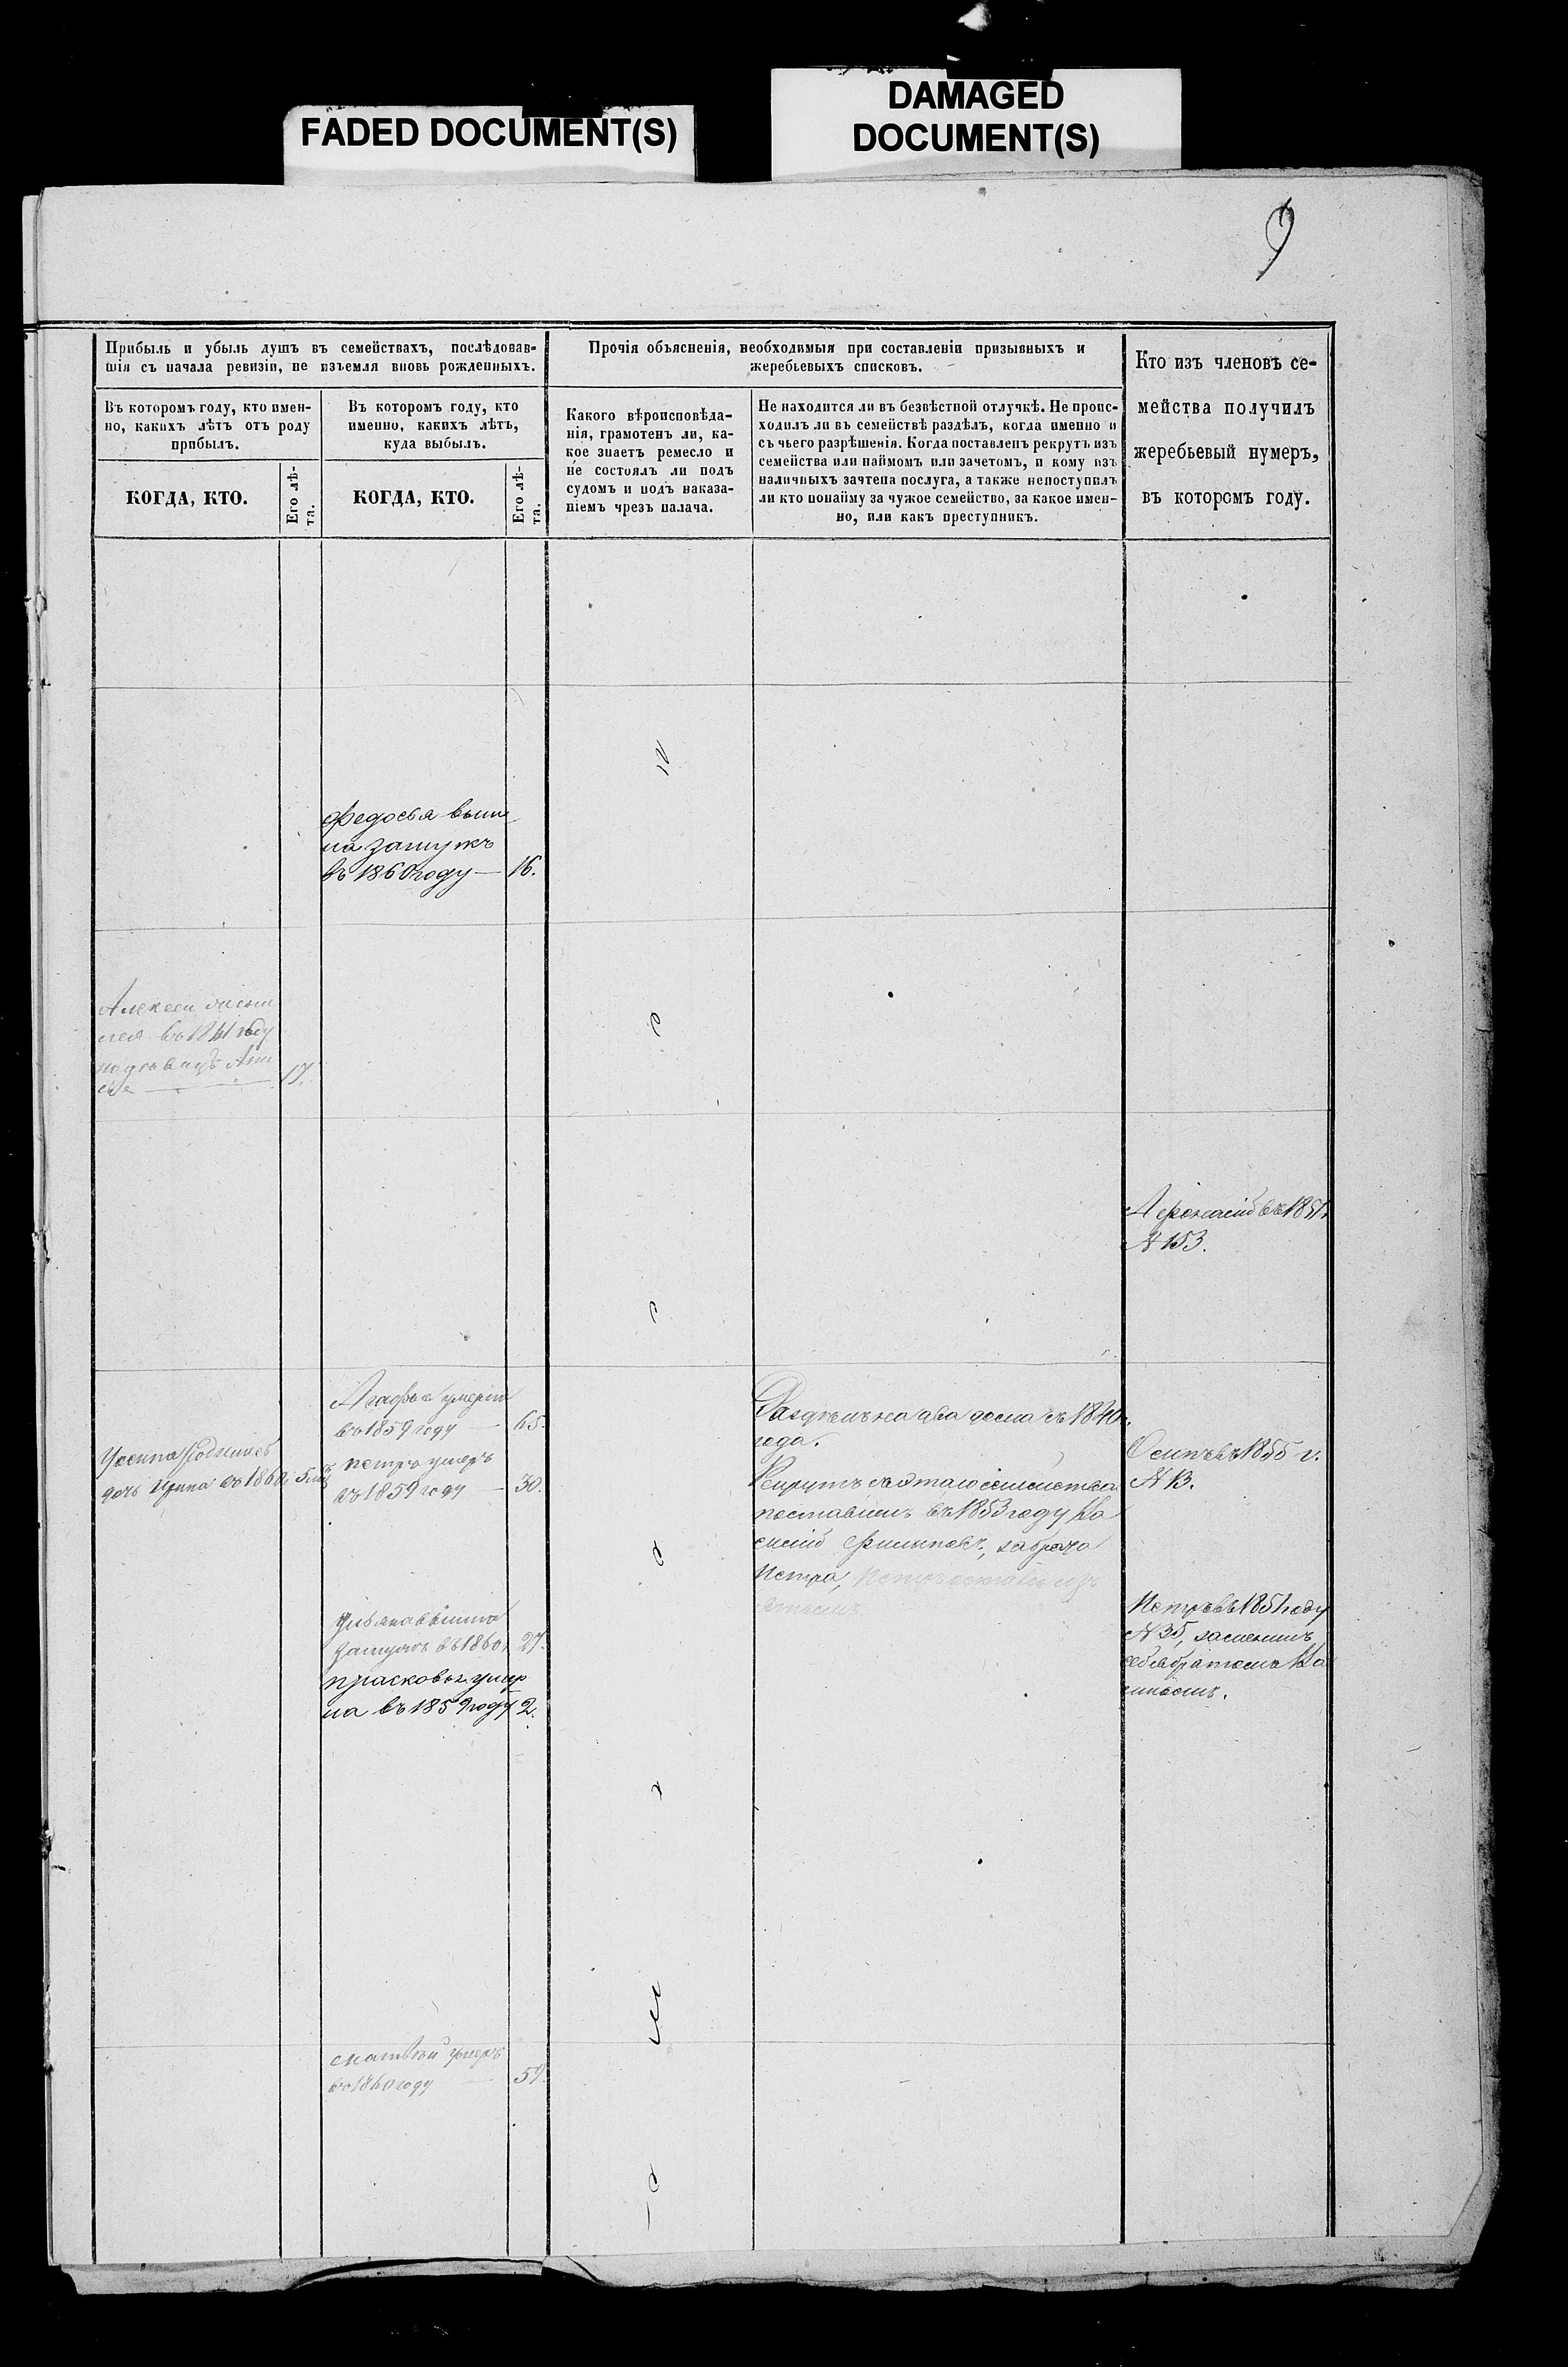 FADED DOCUMENT(S)
DAMAGED
DOCUMENT(S)
9
Прибыль и убыль душъ въ семействахъ, послѣдовав-
шія съ начала ревизіи, не изъемля вновь рожденныхъ.
Въ которомъ году, кто имен-
но, какихъ лѣтъ отъ роду
прибылъ.
КОГДА, КТО.
Его лѣ-
та.
Въ которомъ году, кто
именно, какихъ лѣтъ,
куда выбылъ.
КОГДА, КТО.
Его лѣ-
та.
Прочія объясненія, необходимыя при составленіи призывныхъ и
жеребьевыхъ списковъ.
Какого вѣроисповѣда-
нія, грамотенъ ли, ка-
кое знаетъ ремесло и
не состоялъ ли подъ
судомъ и подъ наказа-
ніемъ чрезъ палача.
Не находится ли въ безвѣстной отлучкѣ. Не проис-
ходилъ ли въ семействѣ раздѣлъ, когда именно и
съ чьего разрѣшенія. Когда поставленъ рекрутъ изъ
семейства или наймомъ или зачетомъ, и кому изъ
наличныхъ зачтена послуга, а также непоступилъ
ли кто понайму за чужое семейство, за какое имен-
но, или какъ преступникъ.
Кто изъ членовъ се-
мейства получилъ
жеребьевый нумеръ,
въ которомъ году.
Федосья выш
ла замужъ
въ 1860 году — 16.
Алексей
въ 1861 году
17.
въ 1851
N 153.
Агафья умерла
въ 1859 году — 65.
петръ умеръ
въ 1859 году — 30.
дочь Ирина въ 1860
Раздѣлъ на два дома съ 1840
года.
Рекрутъ съ этаго семейства
поставленъ въ 1853 году Ва
силій Филиповъ, за брата
Петра,
Осипъ въ 1855 г.
N 13.
Петръ въ 1851 году
N 35, заменилъ
себя братомъ Ва
сильемъ.
Ульяна вышла
замужъ въ 1860 27.
прасковья умер
ла въ 1859 году 2.
Матвѣй умеръ
въ 1860 году — 59.